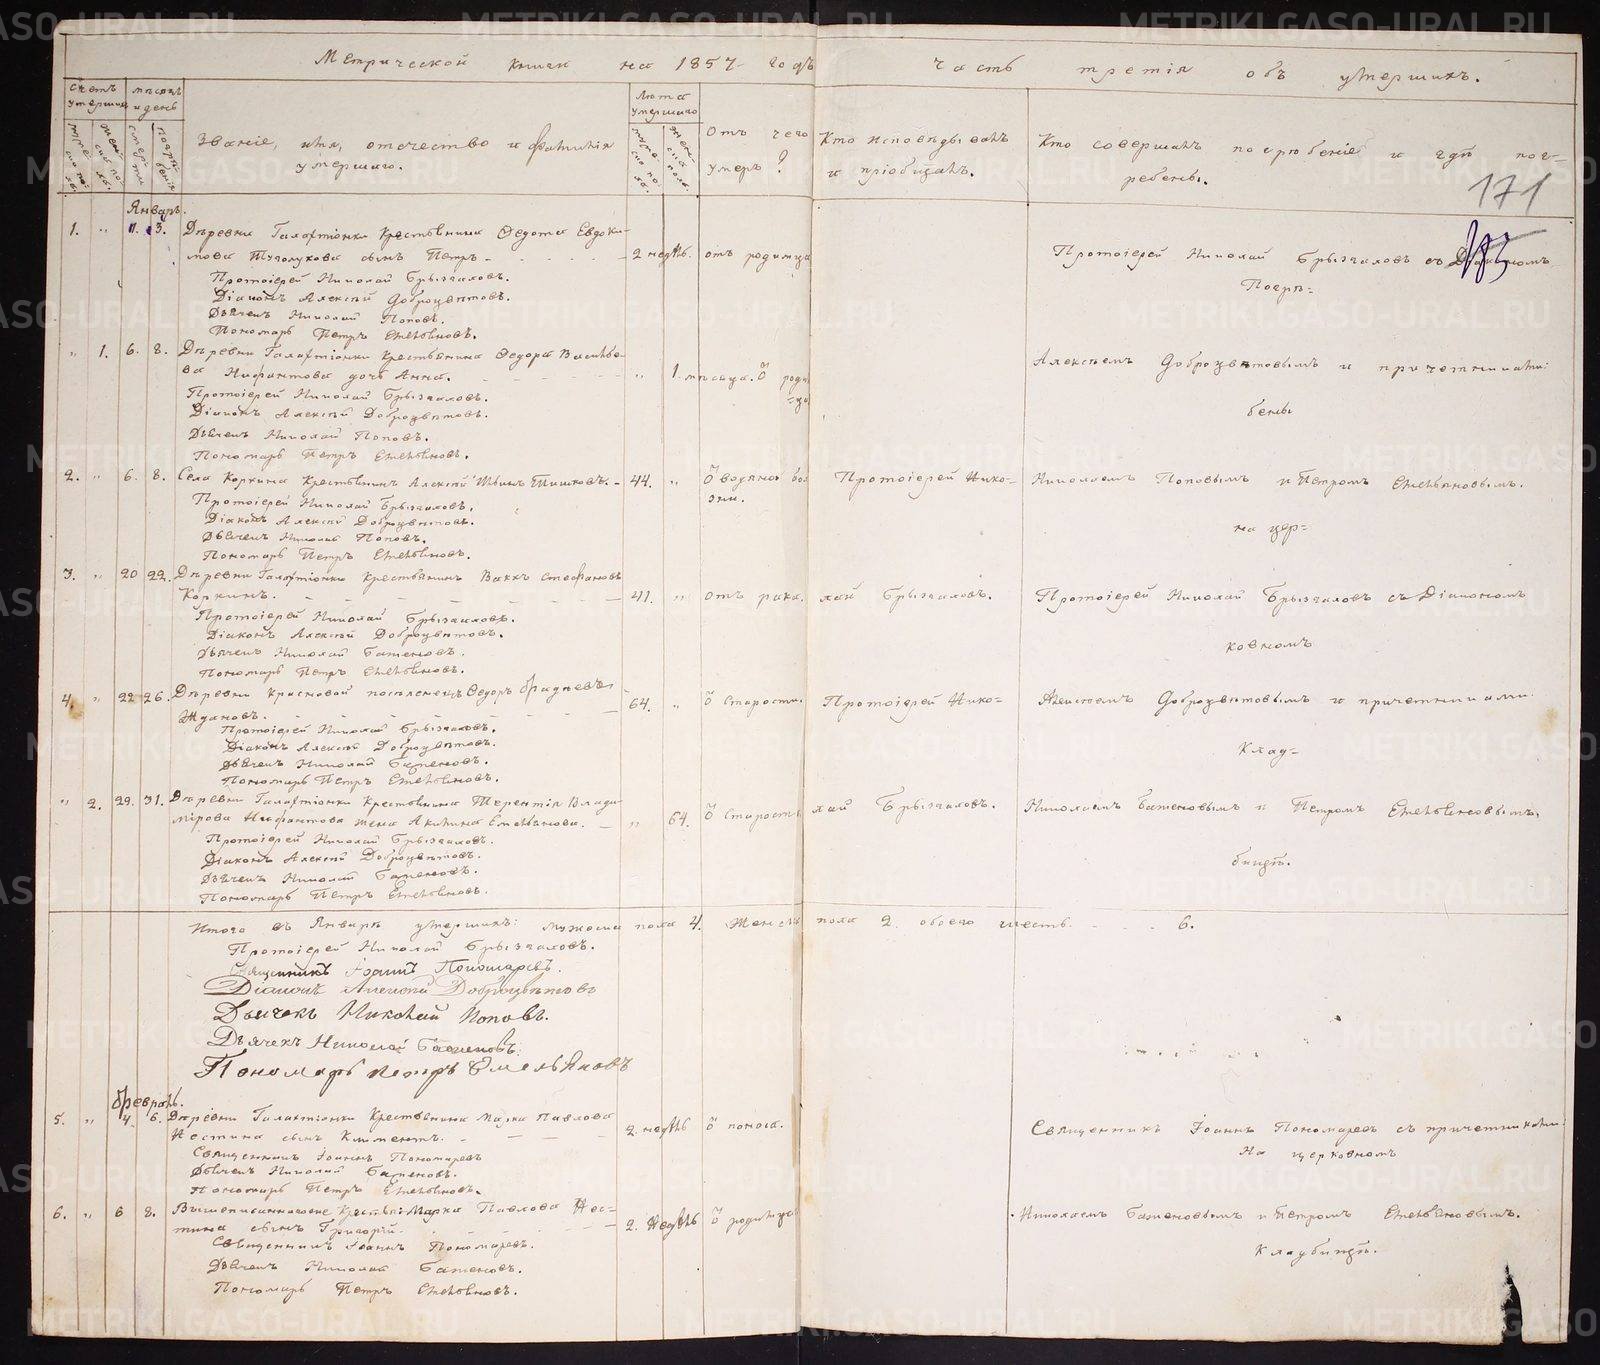 Метрической книги на 1857 годъ часть третія объ умершихъ.
счетъ умершихъ
мѣсяцъ и день
Званіе, имя, отчество и фамилія умершаго.
лѣта умершаго
Отъ чего умеръ?
Кто исповѣдывалъ и пріобщалъ.
Кто совершалъ погребеніе и гдѣ погребены.
171
Январь.
1. " 11. 13. Деревни Галактіонки крестьянина Ѳедота Евдоки-
мова сынъ Петръ - 2 недѣль. отъ родимца Протоіерей Николай Брызгаловъ съ Діакономъ
Протоіерей Николай Брызгаловъ.
Діаконъ Алексѣй Доброцвѣтовъ. Погре=
Дьячекъ Николай Поповъ.
Пономарь Петръ Емельяновъ.
" 1. 6. 8. Деревни Галактіонки крестьянина Ѳедора Василье-
ва Нифантова дочь Анна. " 1. мѣсяца. Алексѣемъ Доброцвѣтовымъ и причетниками:
Протоіерей Николай Брызгаловъ.
Діаконъ Алексѣй Доброцвѣтовъ. бены
Дьячекъ Николай Поповъ.
Пономарь Петръ Емельяновъ.
2. " 6. 8. Села Коркина крестьянинъ Алексѣй - 44. " водяной бо Протоіерей Нико= Николаемъ Поповымъ и Петромъ Емельяновымъ.
Протоіерей Николай Брызгаловъ. зни.
Діаконъ Алексѣй Доброцвѣтовъ. на цер=
Дьячекъ Николай Поповъ.
Пономарь Петръ Емельяновъ.
3. " 20 22. Деревни Галактіонки крестьянинъ Вакхъ Стефановъ
Коркинъ. 41. " отъ рака. лай Брызгаловъ. Протоіерей Николай Брызгаловъ съ Діакономъ
Протоіерей Николай Брызгаловъ.
Діаконъ Алексѣй Доброцвѣтовъ. ковномъ
Дьячекъ Николай Баженовъ.
Пономарь Петръ Емельяновъ.
4. " 22 26. Деревни Красновой поселенецъ Ѳедоръ
Ждановъ. 64. " старости. Протоіерей Нико= Алексѣемъ Доброцвѣтовымъ и причетниками:
Протоіерей Николай Брызгаловъ.
Діаконъ Алексѣй Доброцвѣтовъ. клад=
Дьячекъ Николай Баженовъ.
Пономарь Петръ Емельяновъ.
" 2. 29. 31. Деревни Галактіонки крестьянина Терентія Влади-
мірова Нифантова жена Акилина Емельянова. " 64. старости лай Брызгаловъ. Николаемъ Баженовымъ и Петромъ Емельяновымъ.
Протоіерей Николай Брызгаловъ.
Діаконъ Алексѣй Доброцвѣтовъ. бищѣ.
Дьячекъ Николай Баженовъ.
Пономарь Петръ Емельяновъ.
Итого въ Январѣ умершихъ: мужеска пола 4. Женска пола 2. обоего шесть. 6.
Протоіерей Николай Брызгаловъ.
Священникъ Іоаннъ Пономаревъ.
Діаконъ Алексѣй Доброцвѣтовъ
Дьячекъ Николай Поповъ.
Дьячекъ Николай Баженовъ.
Пономарь Петръ Емельяновъ
Февраль.
5. " 4. 6. Деревни Галактіонки крестьянина Марка Павлова
сынъ Климентъ. 2. недѣль поноса. Священникъ Іоаннъ Пономаревъ съ причетниками:
Священникъ Іоаннъ Пономаревъ На церковномъ
Дьячекъ Николай Баженовъ.
Пономарь Петръ Емельяновъ.
6. " 6 8. Вышеписаннаго крестьян: Марка Павлова
сынъ Григорій. 2. недѣль родимца Николаемъ Баженовымъ и Петромъ Емельяновымъ.
Священникъ Іоаннъ Пономаревъ. кладбищѣ.
Дьячекъ Николай Баженовъ.
Пономарь Петръ Емельяновъ.
METRIKI.GASO-URAL.RU